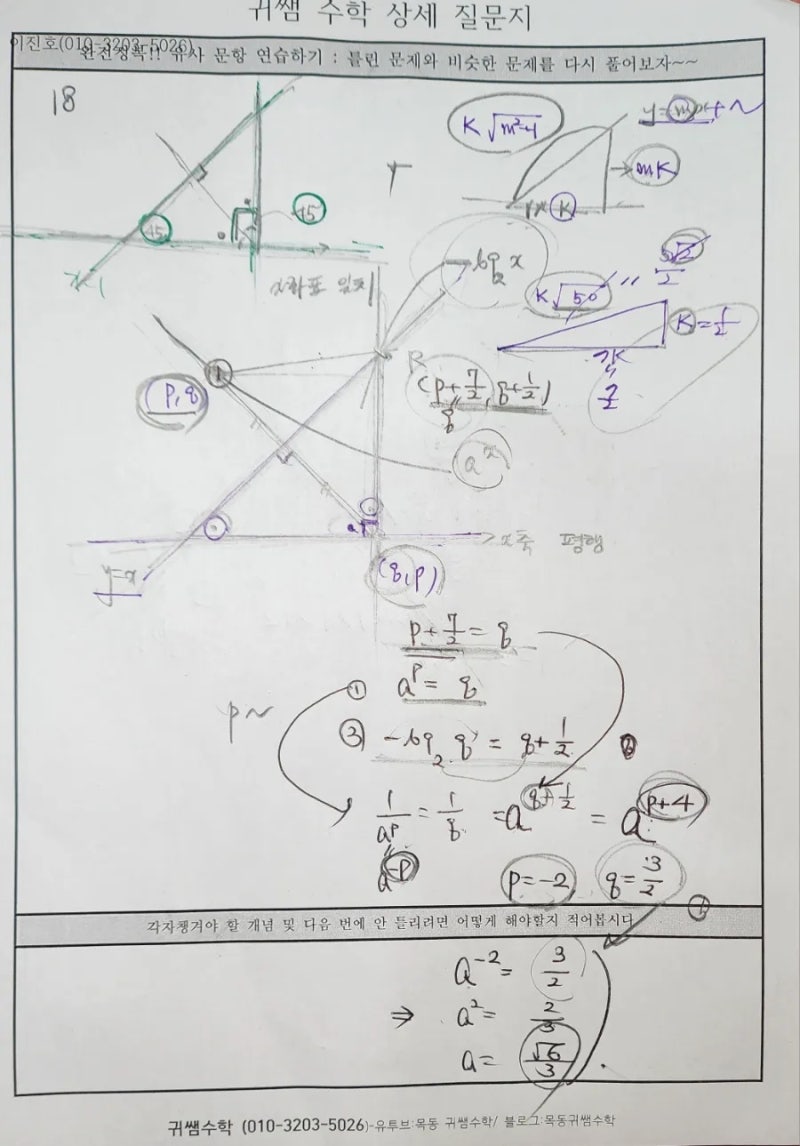 귀쌤 수학 상세 질문지
이진호(010-3203-5026)
완전정복!! 유사 문항 연습하기 : 틀린 문제와 비슷한 문제를 다시 풀어보자~~
18
45
45
K√m²+1
mK
K
x좌표 일치
K√50 " 5√2/2
K=1/2
7K
"
7/2
R
(p+7/2, q+1/2)
"
q
(p,q)
①
aˣ
x축 평행
y=x
(q,p)
p+7/2=q
① aᵖ=q
p~
③ -log₂ q = q+1/2
1/aᵖ = 1/q = a^(q+1/2) = a^(p+4)
"
a^(-p)
p=-2 q=3/2
각자챙겨야 할 개념 및 다음 번에 안 틀리려면 어떻게 해야할지 적어봅시다
a⁻²=3/2
⇒ a²=2/3
a=√6/3
귀쌤수학 (010-3203-5026)-유투브:목동 귀쌤수학/ 블로그:목동귀쌤수학